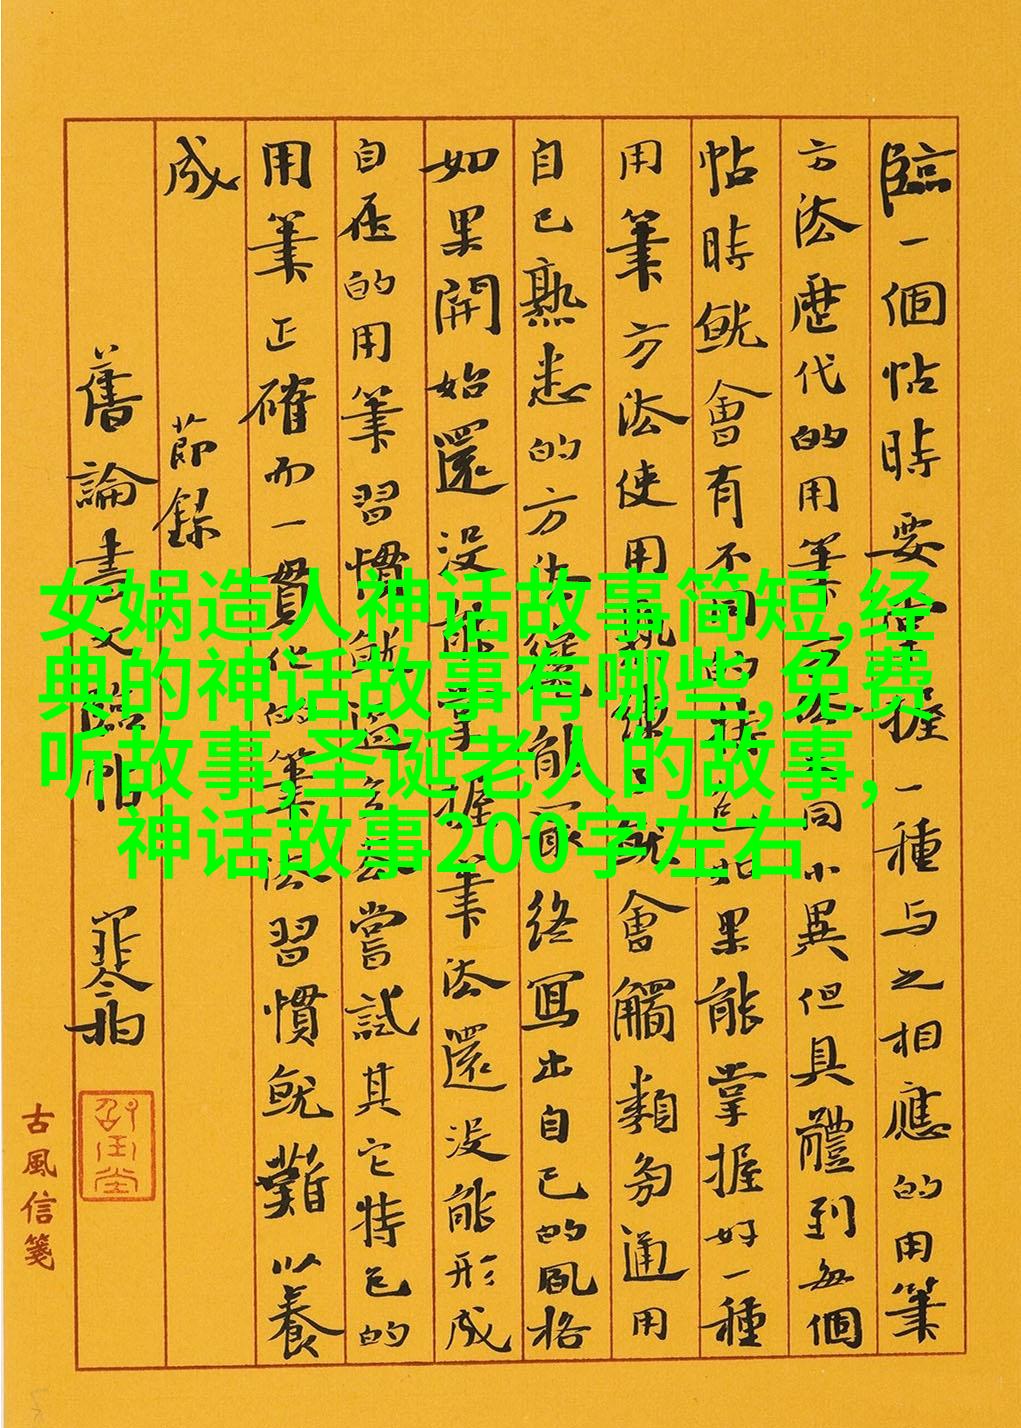 臨一個帖時要掌握一種与之相應的用筆
方法歷代的用筆方法大同小異但具體到每個
帖時就會有不同的特点如果能掌握好一種
用筆方法使用熟練了就會觸類旁通用
自己熟悉的方法就能最終寫出自己的風格
如果開始還沒能掌握筆法還沒能形成
自在的用筆習慣就嘗試其它特色的
用筆正確而一貫化的筆法習慣就難以養
成 節錄
舊論書文臨帖
古風信箋
女娲造人神话故事简短,经
典的神话故事有哪些,免费
听故事,圣诞老人的故事,
神话故事200字左右